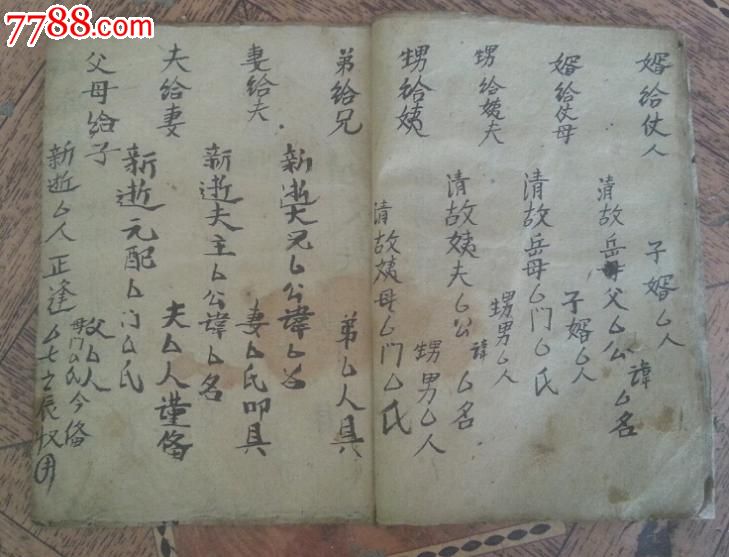 7788.com
婿给仗人
子婿厶人
清故岳父厶公讳厶名
婿给仗母
清故岳母厶门厶氏
子婿厶人
甥给姨夫
清故姨夫厶公讳厶名
甥男厶人
甥给姨
清故姨母厶门厶氏
甥男厶人
弟给兄
弟厶人具
新逝大兄厶公諱厶名
妻给夫
妻厶氏叩具
新逝夫主厶公諱厶名
夫给妻
夫厶人谨俻
新逝元配厶门厶氏
父母给子
父厶人
母门厶氏今俻
新逝厶人正逢厶七之辰